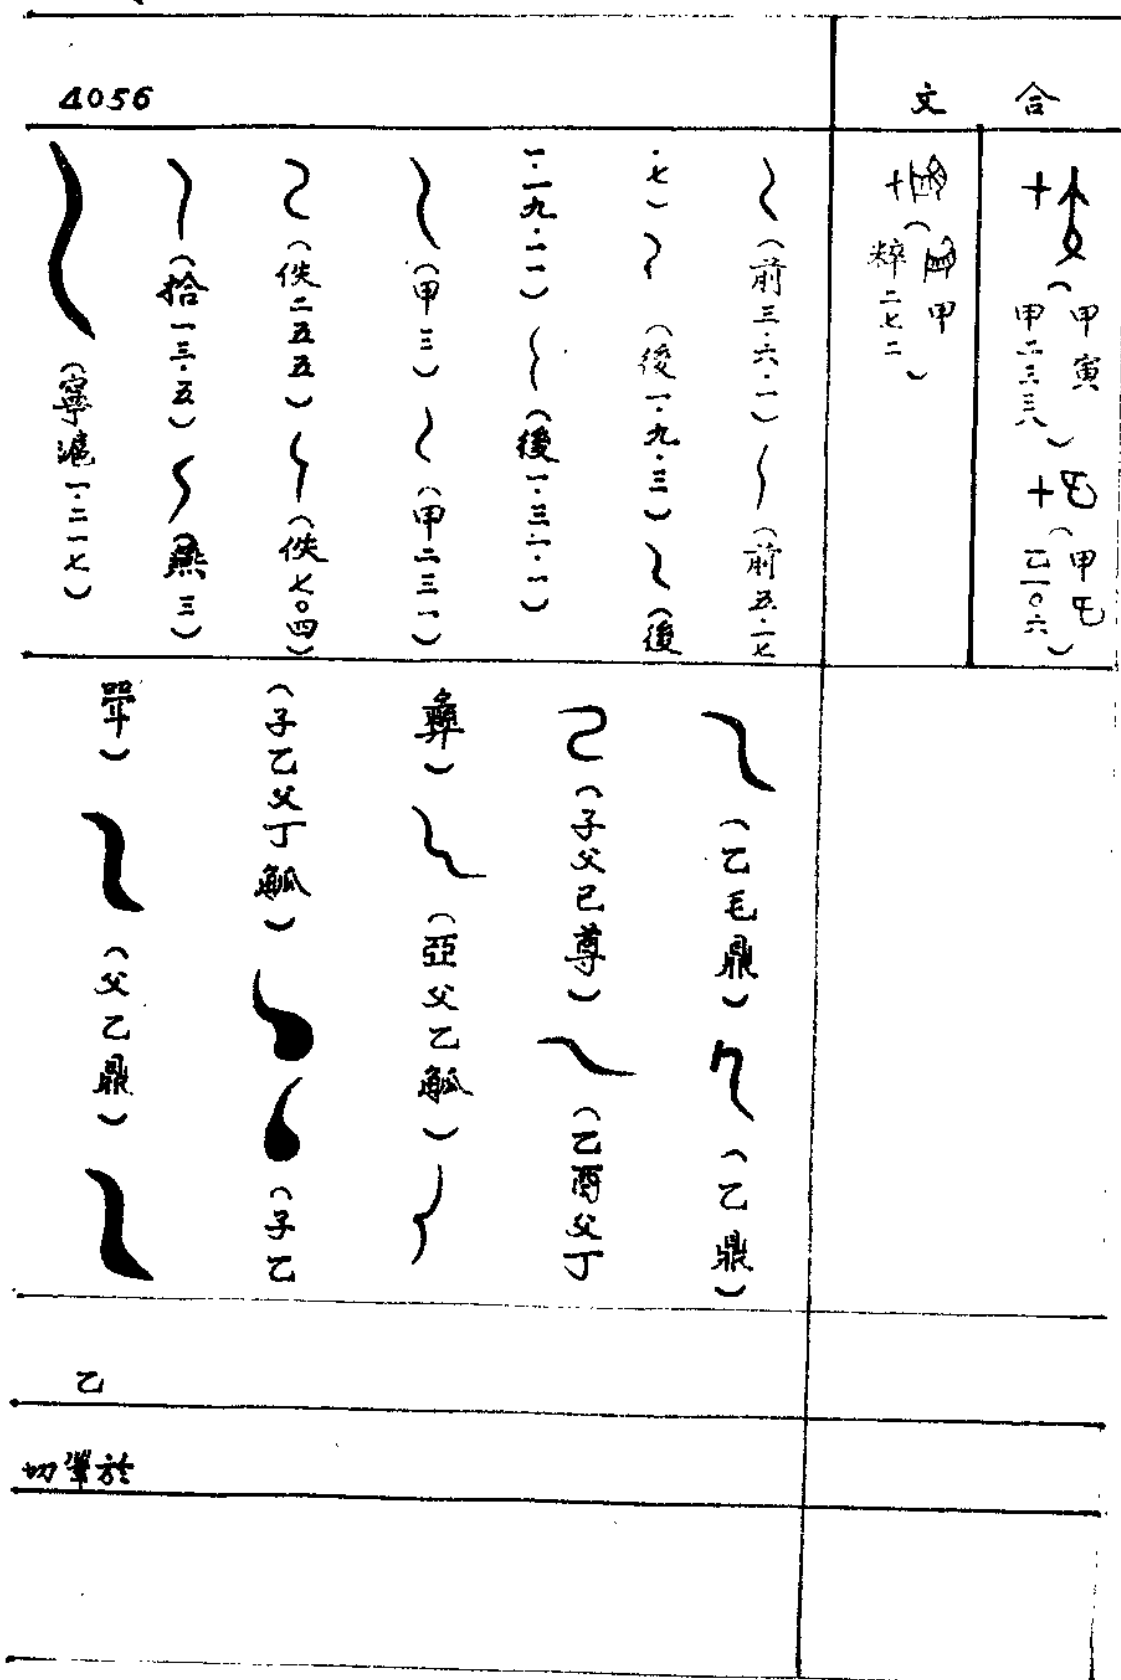 合文
(甲寅
甲二三三八)
(甲乇
乙一〇六)
甲
(粹二七二)
4056
(前三·六·一) (前五·一七
·七) (後一·九·三) (後
一·一九·一一) (後
(甲三) (甲二三一)
(佚二五五) (佚七〇四)
(拾一三·五) (燕三)
(寧滬一·二一七)
(乙毛鼎) (乙鼎)
(子父己尊) (乙爵父丁
彝) (亞父乙觚)
(子乙父丁觚) (子乙
斝) (父乙鼎)
乙
於筆切